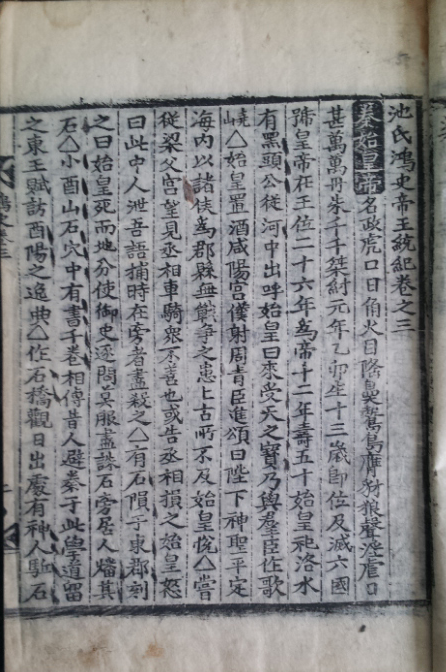 池氏鴻史帝王統紀卷之三
秦始皇帝 名政虎口日角大目隆鼻鷙鳥膺豺狼聲
甚萬萬朱千千桀紂元年乙卯生十三歲即位及滅六國
皇帝在王位二十六年爲帝十二年壽五十始皇祀洛水
有黑頭公從河中出呼始皇曰來受天之寶乃與羣臣作歌
△始皇置酒咸陽宮僕射周青臣進頌曰陛下神聖平定
海內以諸侯爲郡縣無戰爭之患上古所不及始皇悅△嘗
從梁父宮望見丞相車騎衆不善也或告丞相損之始皇怒
曰此中人泄吾語捕時在旁者盡殺之△有石隕于東郡刻
之曰始皇死而地分使御史逐問莫服盡誅石旁居人燔其
石△小酉山石穴中有書千卷相傳昔人避秦于此學遺留
之東王賦訪酉陽之逸典△作石橋觀日出處有神人驅石
鴻史卷三